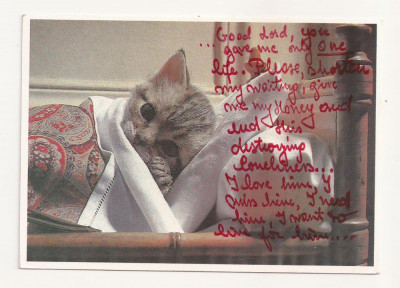 ... Good Lord, you
gave me only one
life. Please, shorten
my waiting, give
me my Honey and
end this
destroying
loneliness...
I love him, I
miss him, I need
him, I want to
live for him....